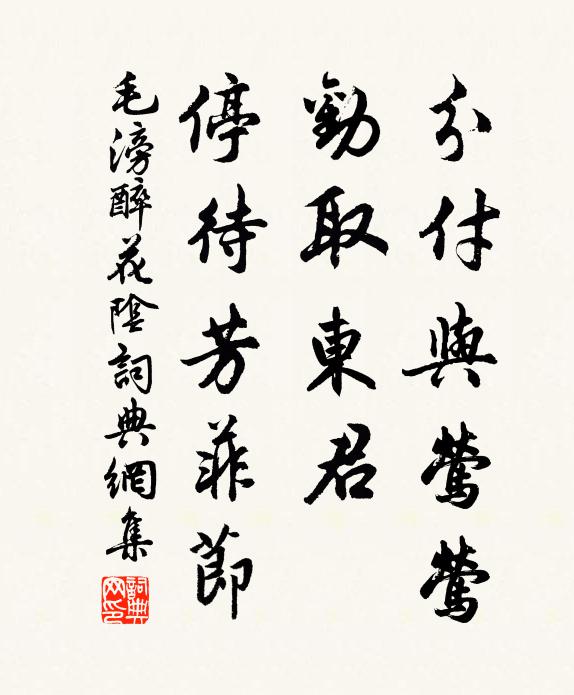 分付與鶯鶯
勸取東君
停待芳菲節
毛滂醉花陰詞典網集
詞典网印